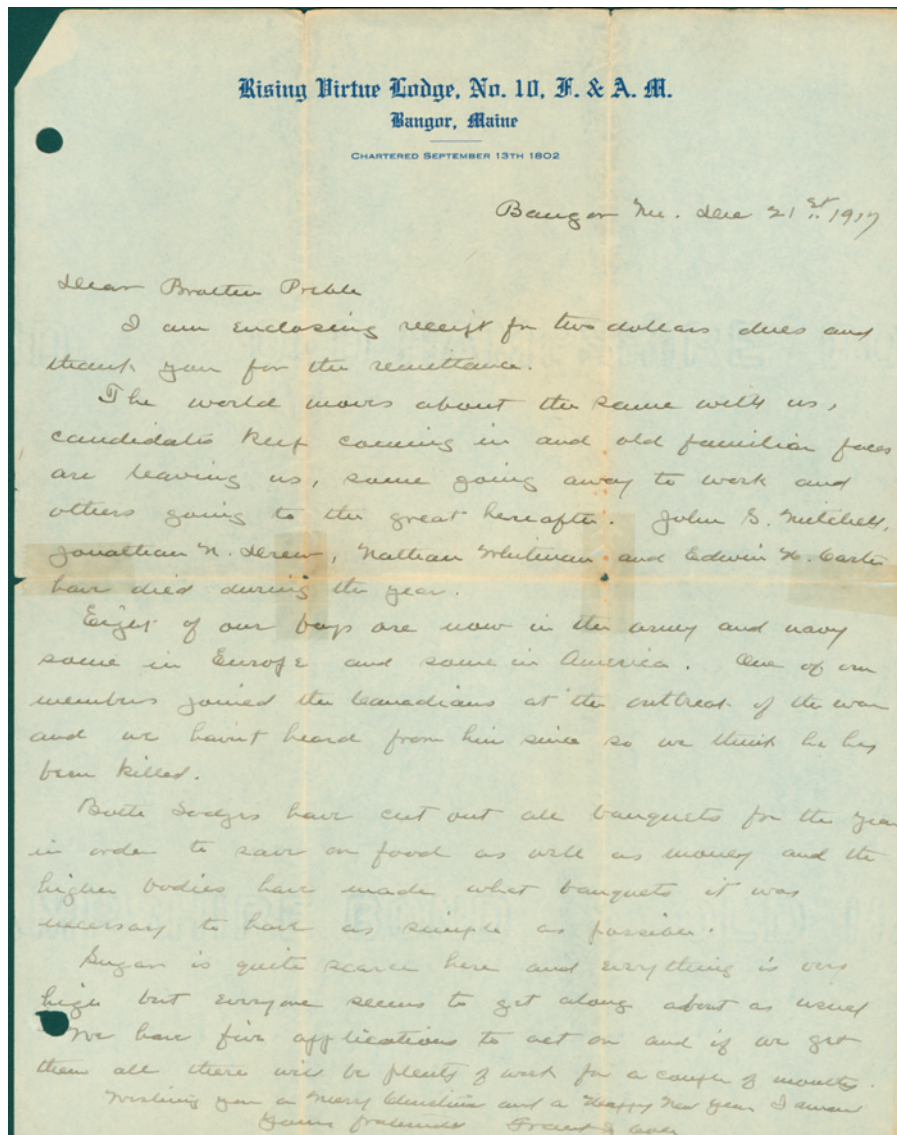 Rising Virtue Lodge, No. 10, F. & A. M.
Bangor, Maine
CHARTERED SEPTEMBER 13TH 1802
Bangor Me. Dec 21st 1917
Dear Brother Preble
I am enclosing receipt for two dollars dues and
thank you for the remittance.
The world moves about the same with us,
candidates keep coming in and old familiar faces
are leaving us, some going away to work and
others going to the great hereafter. John S. Mitchell,
Jonathan N. Drew, Nathan Whitman and Edwin H. Carter
have died during the year.
Eight of our boys are now in the army and navy
some in Europe and some in America. One of our
members joined the Canadians at the outbreak of the war
and we havn't heard from him since so we think he has
been killed.
Both Lodges have cut out all banquets for the year
in order to save on food as well as money and the
higher bodies have made what banquets it was
necessary to have as simple as possible.
Sugar is quite scarce here and everything is very
high but everyone seems to get along about as usual
We have five applications to act on and if we get
them all there will be plenty of work for a couple of months.
Wishing you a Merry Christmas and a Happy New Year I am
Yours fraternally